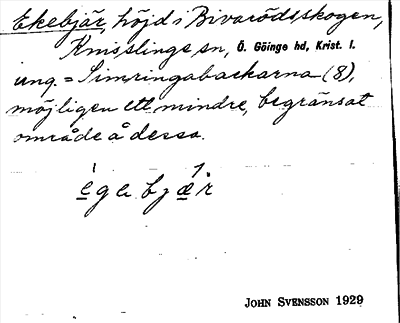 Ekebjär, höjd i Bivarödsskogen,
Knisslinge sn, Ö. Göinge hd, Krist. l.
ung. = Simringabackarna (8),
möjligen ett mindre, begränsat
område å dessa.
ègebjǽr
JOHN SVENSSON 1929